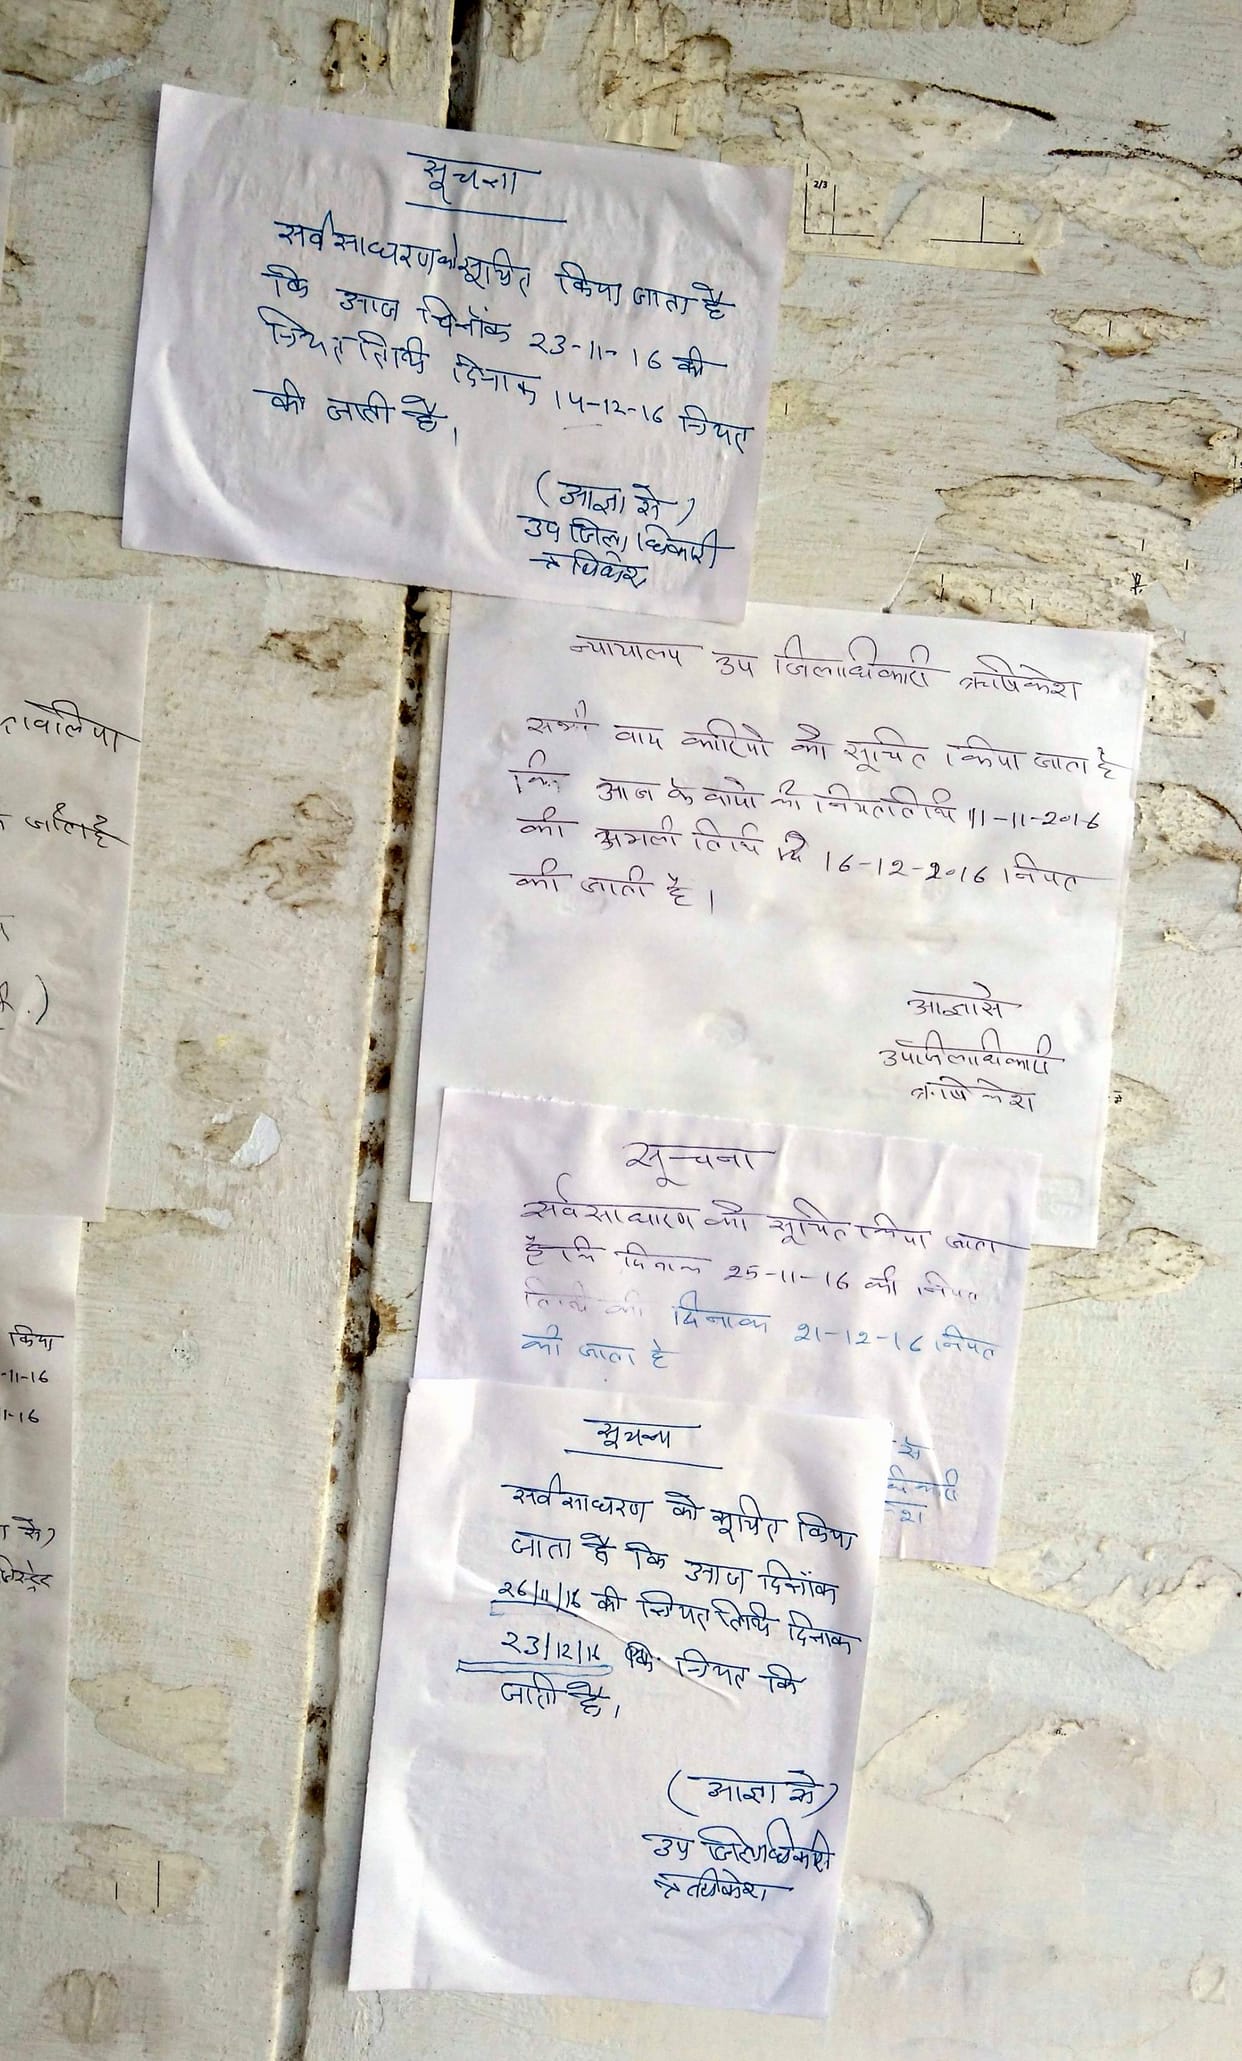 सूचना
सर्वसाधरण को सूचित किया जाता है
कि आज दिनाँक 23-11-16 की
नियत तिथि दिनाक 14-12-16 नियत
की जाती है।
(आज्ञा से)
उप जिलाधिकारी
ऋषिकेश
2/3
न्यायालय उप जिलाधिकारी ऋषिकेश
सभी वाद कारियो को सूचित किया जाता है
कि आज के वादो की नियततिथि 11-11-2016
की अगली तिथि 16-12-2016 नियत
की जाती है।
आज्ञा से
उपजिलाधिकारी
ऋषिकेश
सूचना
सर्वसाधारण को सूचित किया जाता
है कि दिनाक 25-11-16 की नियत
तिथि की दिनाक 21-12-16 नियत
की जाता है
से
सूचना
सर्वसाधरण को सूचित किया
जाता है कि आज दिनाँक
26/11/16 की नियत तिथि दिनाक
23/12/16 नियत कि
जाती है।
(आज्ञा से)
उप जिलाधिकारी
ऋषिकेश
किया
-11-16
1-16
से)